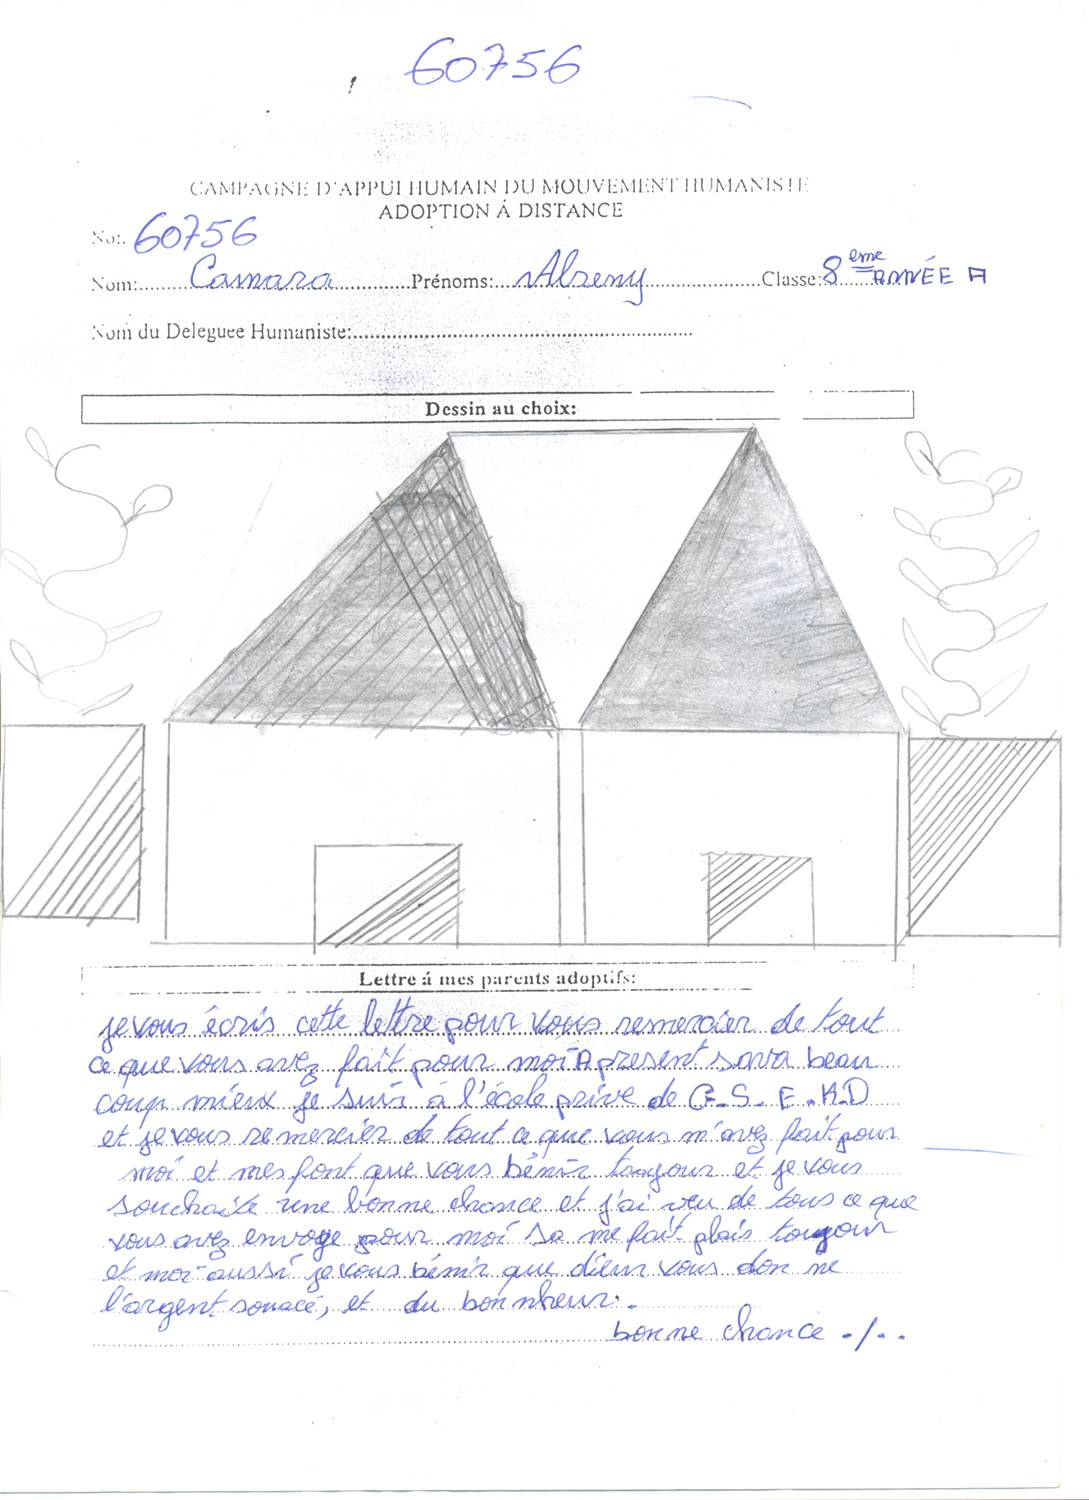 60756
CAMPAGNE D'APPUI HUMAIN DU MOUVEMENT HUMANISTE
ADOPTION Á DISTANCE
No:. 60756
Nom:........Camara............Prénoms:...Alseny....................Classe:8 eme ANNÉE A
Nom du Deleguee Humaniste:..............................................................
Dessin au choix:
Lettre á mes parents adoptifs:
je vous écris cette lettre pour vous remercier de tout
ce que vous avez fait pour moi A present sa va beau
coup mieux je suis à l'école prive de G.S.E.H.D
et je vous remercier de tout ce que vous m'avez fait pour
moi et mes font que vous bénir toujour et je vous
souhaite une bonne chance et j'ai veu de tous ce que
vous avez envoye pour moi sa me fait plais toujour
et moi aussi je vous bénir que dieu vous don ne
l'argent, et du bonnheur.
bonne chance ./..